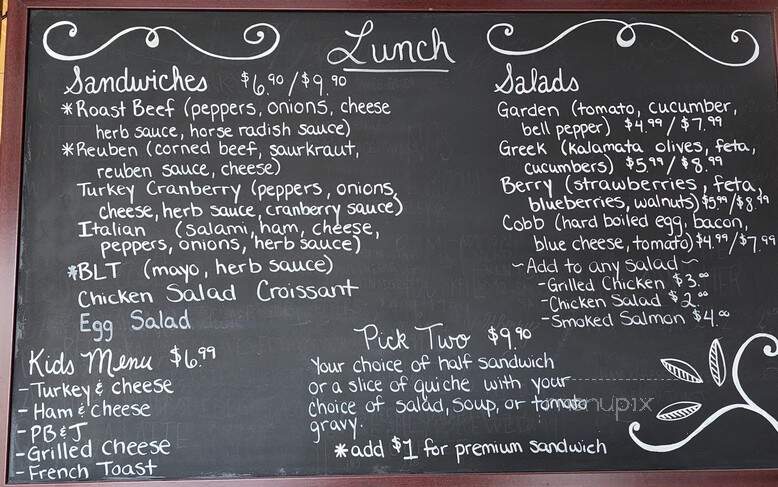 Lunch
Sandwiches $6.90/$9.90
*Roast Beef (peppers, onions, cheese
herb sauce, horse radish sauce)
*Reuben (corned beef, saurkraut,
reuben sauce, cheese)
Turkey Cranberry (peppers, onions,
cheese, herb sauce, cranberry sauce)
Italian (salami, ham, cheese,
peppers, onions, herb sauce)
*BLT (mayo, herb sauce)
Chicken Salad Croissant
Egg Salad
Salads
Garden (tomato, cucumber,
bell pepper) $4.99/$7.99
Greek (kalamata olives, feta,
cucumbers) $5.99/$8.99
Berry (strawberries, feta,
blueberries, walnuts) $5.99/$8.99
Cobb (hard boiled egg, bacon,
blue cheese, tomato) $4.99/$7.99
~Add to any salad~
-Grilled Chicken $3.00
-Chicken Salad $2.00
-Smoked Salmon $4.00
Kids Menu $6.99
-Turkey & cheese
-Ham & cheese
-PB&J
-Grilled Cheese
-French Toast
Pick Two $9.90
Your choice of half sandwich
or a slice of quiche with your
choice of salad, soup, or tomato
gravy.
*add $1 for premium sandwich
menupix